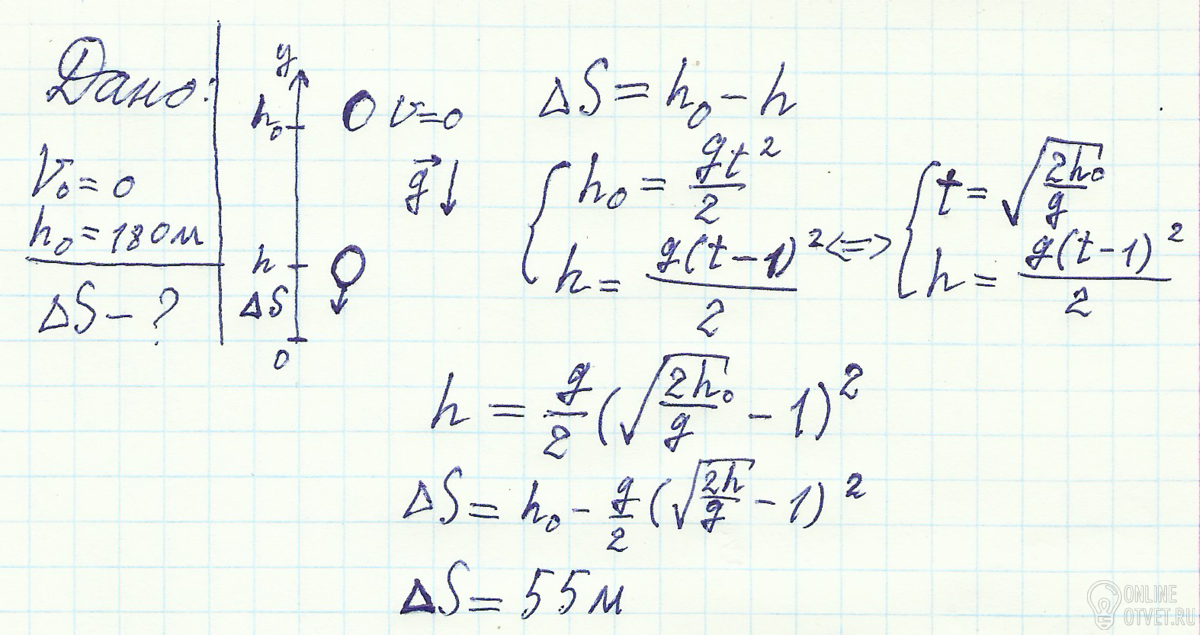 Дано:
V₀ = 0
h₀ = 180м
ΔS – ?
y
h₀
V=0
g⃗ ↓
h
ΔS
0
ΔS = h₀ – h
{ h₀ = gt²/2
h = g(t – 1)²/2 <=> { t = √(2h₀/g)
h = g(t – 1)²/2
h = g/2 (√(2h₀/g) – 1)²
ΔS = h₀ – g/2 (√(2h/g) – 1)²
ΔS = 55м
ONLINE
OTVET.RU